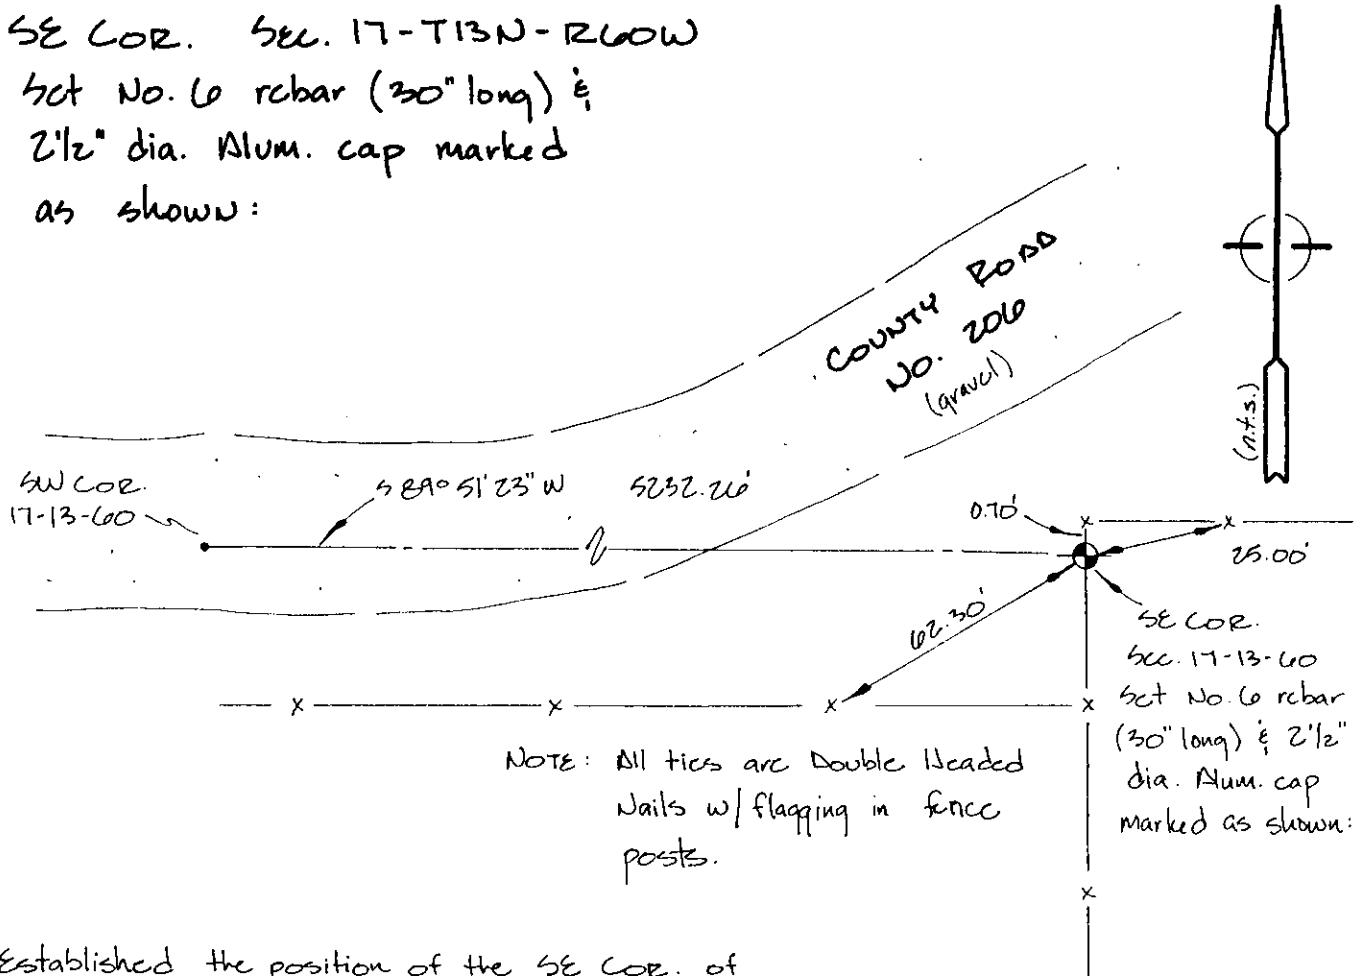 SE COR. SEC. 17-T13N-R60W
Set No. 6 rebar (30" long) &
2 1/2" dia. Alum. cap marked
as shown:
COUNTY ROAD
NO. 206
(gravel)
(n.t.s.)
SW COR.
17-13-60
S 89° 51' 23" W 5232.26'
0.70'
25.00'
62.30'
SE COR.
Sec. 17-13-60
Set No. 6 rebar
(30" long) & 2 1/2"
dia. Alum. cap
marked as shown:
NOTE: All ties are Double Headed
Nails w/ flagging in fence
posts.
Established the position of the SE COR. of